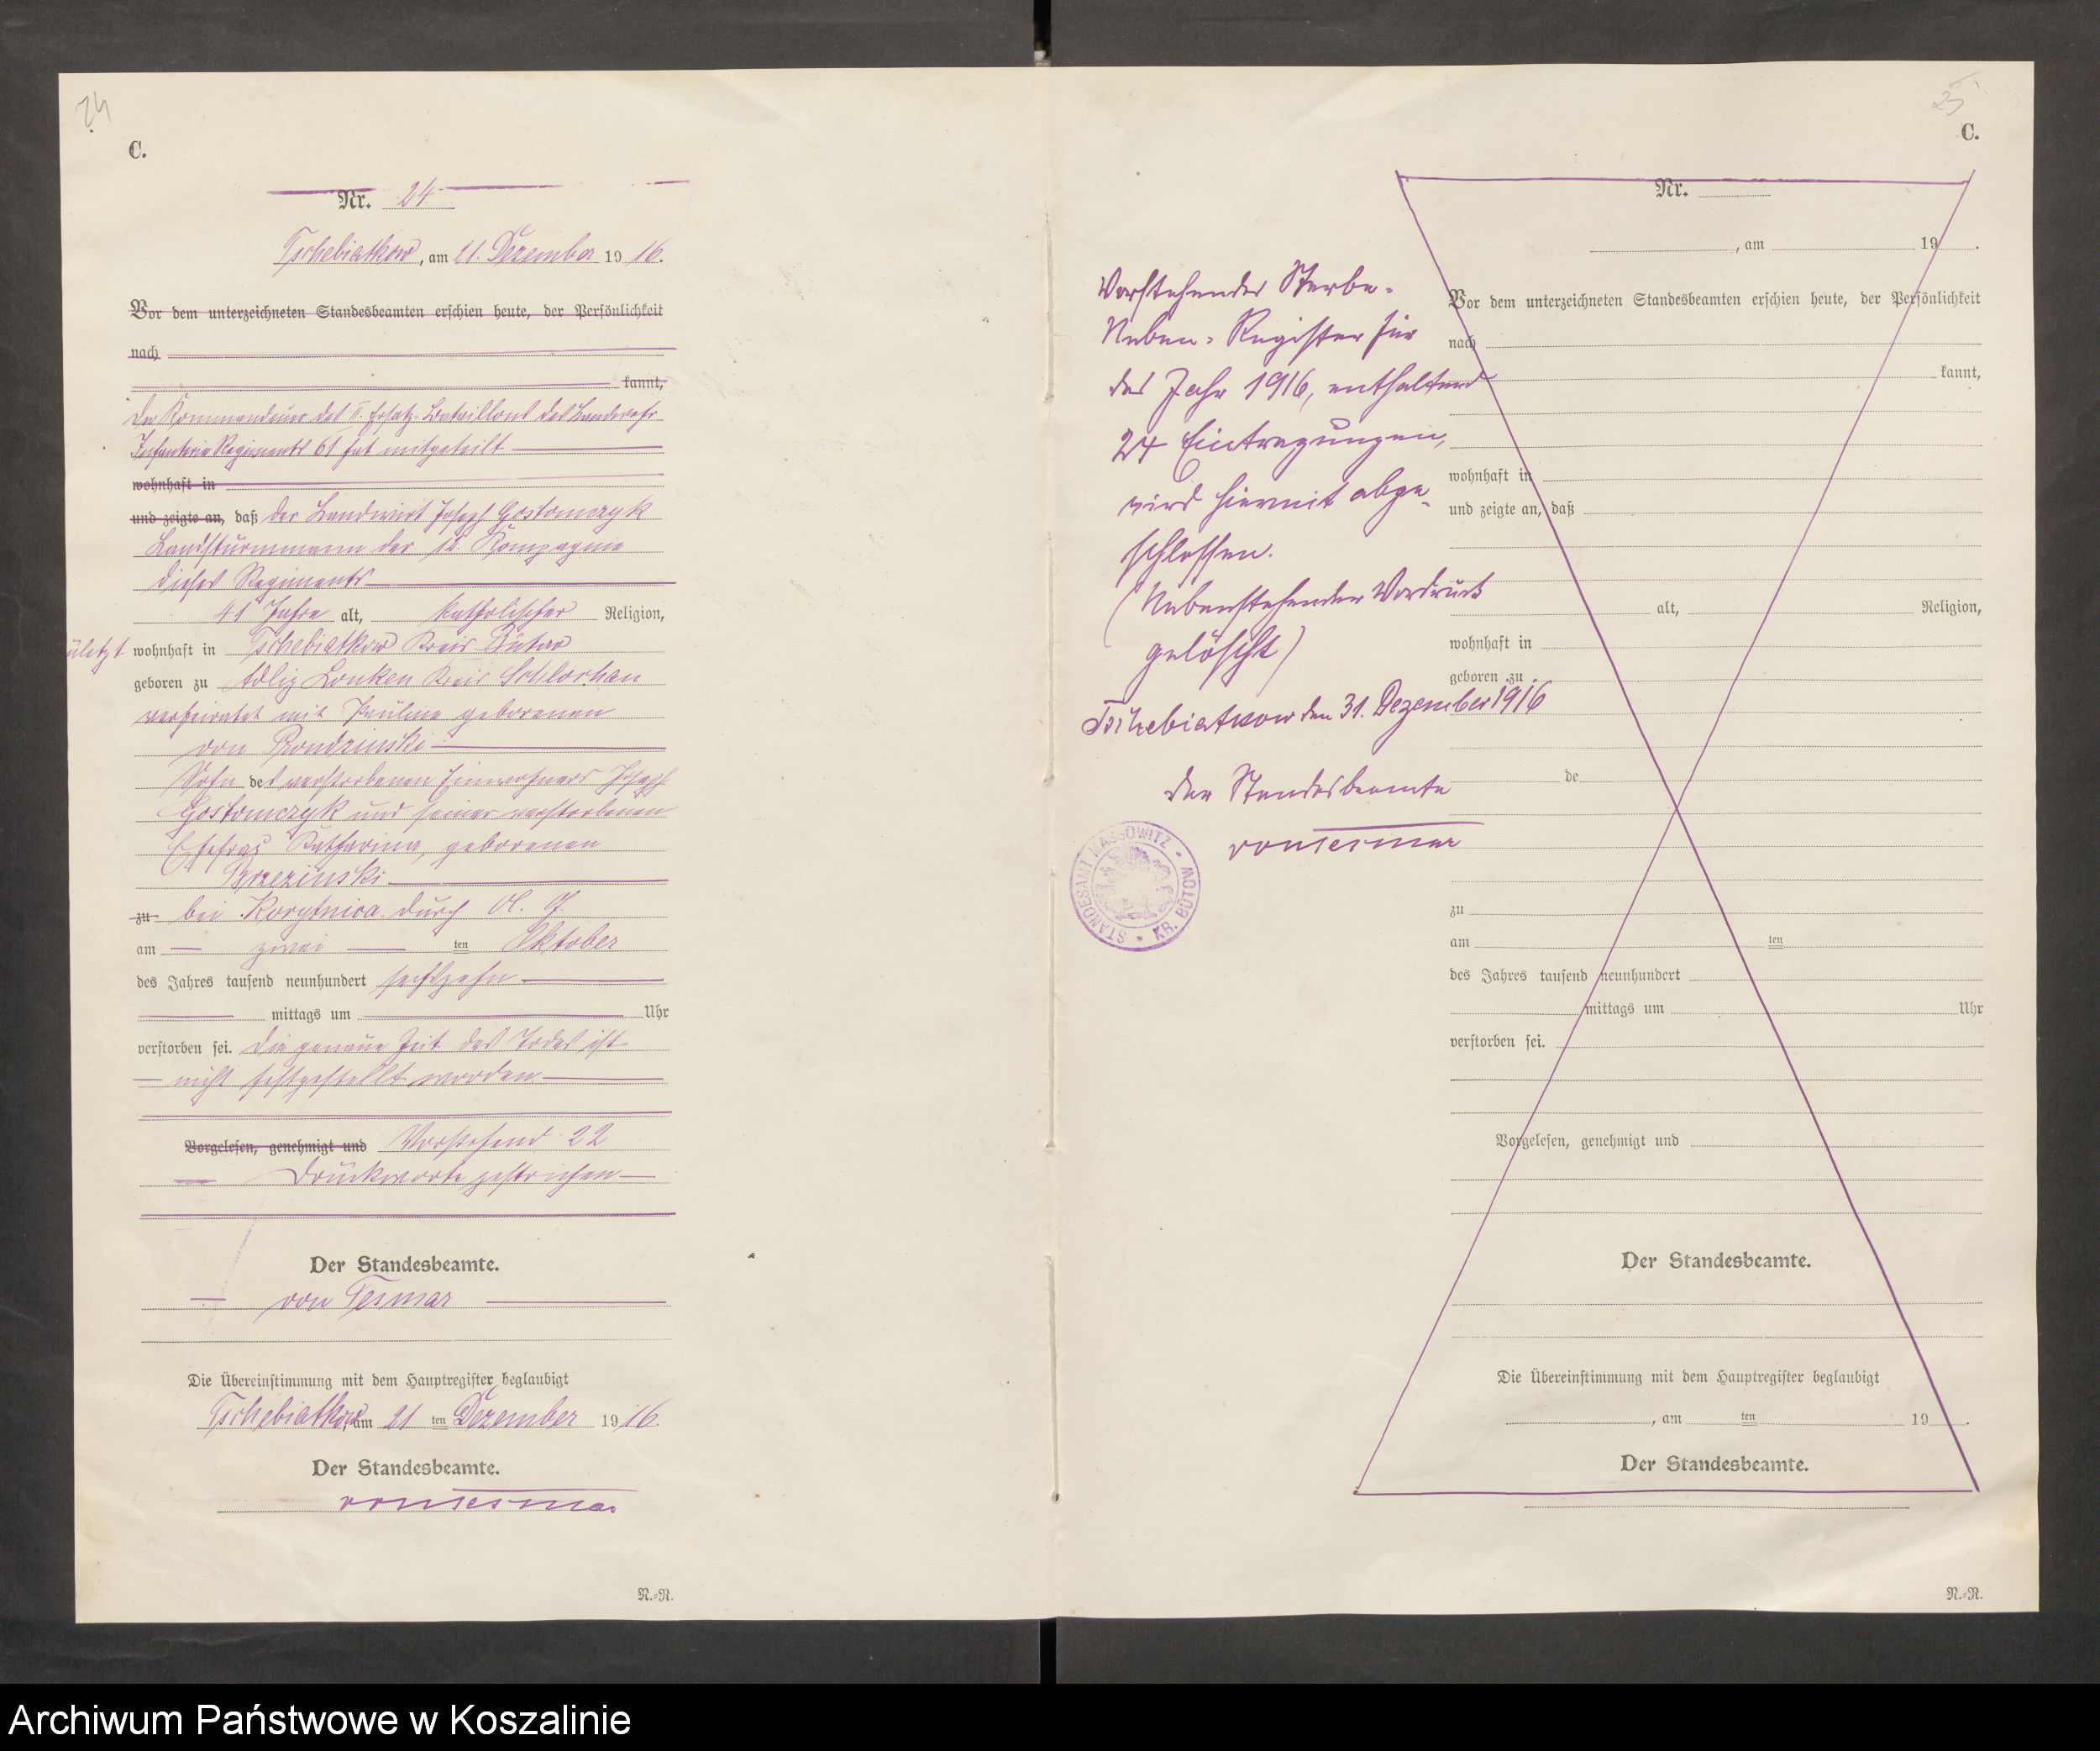 24
C.
Nr. 24
Tschebiatkow, am 21. Dezember 1916.
Vor dem unterzeichneten Standesbeamten erschien heute, der Persönlichkeit
nach
kannt,
Der Kommandeur des II. Ersatz-Bataillons des Landwehr
Infanterie Regiments 61 hat mitgeteilt
wohnhaft in
und zeigte an, daß der Landwirt Joseph Gostomczyk
Landsturmmann der 12. Kompagnie
dieses Regiments
41 Jahre alt, katholischer Religion,
zuletzt wohnhaft in Tschebiatkow Kreis Bütow
geboren zu Adlig Lonken Kreis Schlochau
verheiratet mit Pauline geborenen
von Rondzinski
Sohn des verstorbenen Einwohners Joseph
Gostomczyk und seiner verstorbenen
Ehefrau Katharina, geborenen
Brzezinski
zu bei Korytnica durch A. G.
am zwei ten Oktober
des Jahres tausend neunhundert sechszehn
mittags um Uhr
verstorben sei. Die genaue Zeit des Todes ist
nicht festgestellt worden
Vorgelesen, genehmigt und Vorstehend 22
Druckworte gestrichen
Der Standesbeamte.
von Tesmar
Die Übereinstimmung mit dem Hauptregister beglaubigt
Tschebiatkow, am 21 ten Dezember 1916.
Der Standesbeamte.
von Tesmar
N.=R.
25
C.
Nr.
, am 19 .
Vor dem unterzeichneten Standesbeamten erschien heute, der Persönlichkeit
nach
kannt,
wohnhaft in
und zeigte an, daß
alt, Religion,
wohnhaft in
geboren zu
de
zu
am ten
des Jahres tausend neunhundert
mittags um Uhr
verstorben sei.
Vorgelesen, genehmigt und
Der Standesbeamte.
Die Übereinstimmung mit dem Hauptregister beglaubigt
, am ten 19 .
Der Standesbeamte.
N.=R.
Vorstehender Sterbe-
Neben-Register für
das Jahr 1916, enthaltend
24 Eintragungen,
wird hiermit abge-
schlossen.
(Nebenstehender Vordruck
gelöscht)
Tschebiatkow den 31. Dezember 1916
Der Standesbeamte
von Tesmar
STANDESAMT MASSOWITZ * KR. BÜTOW *
Archiwum Państwowe w Koszalinie